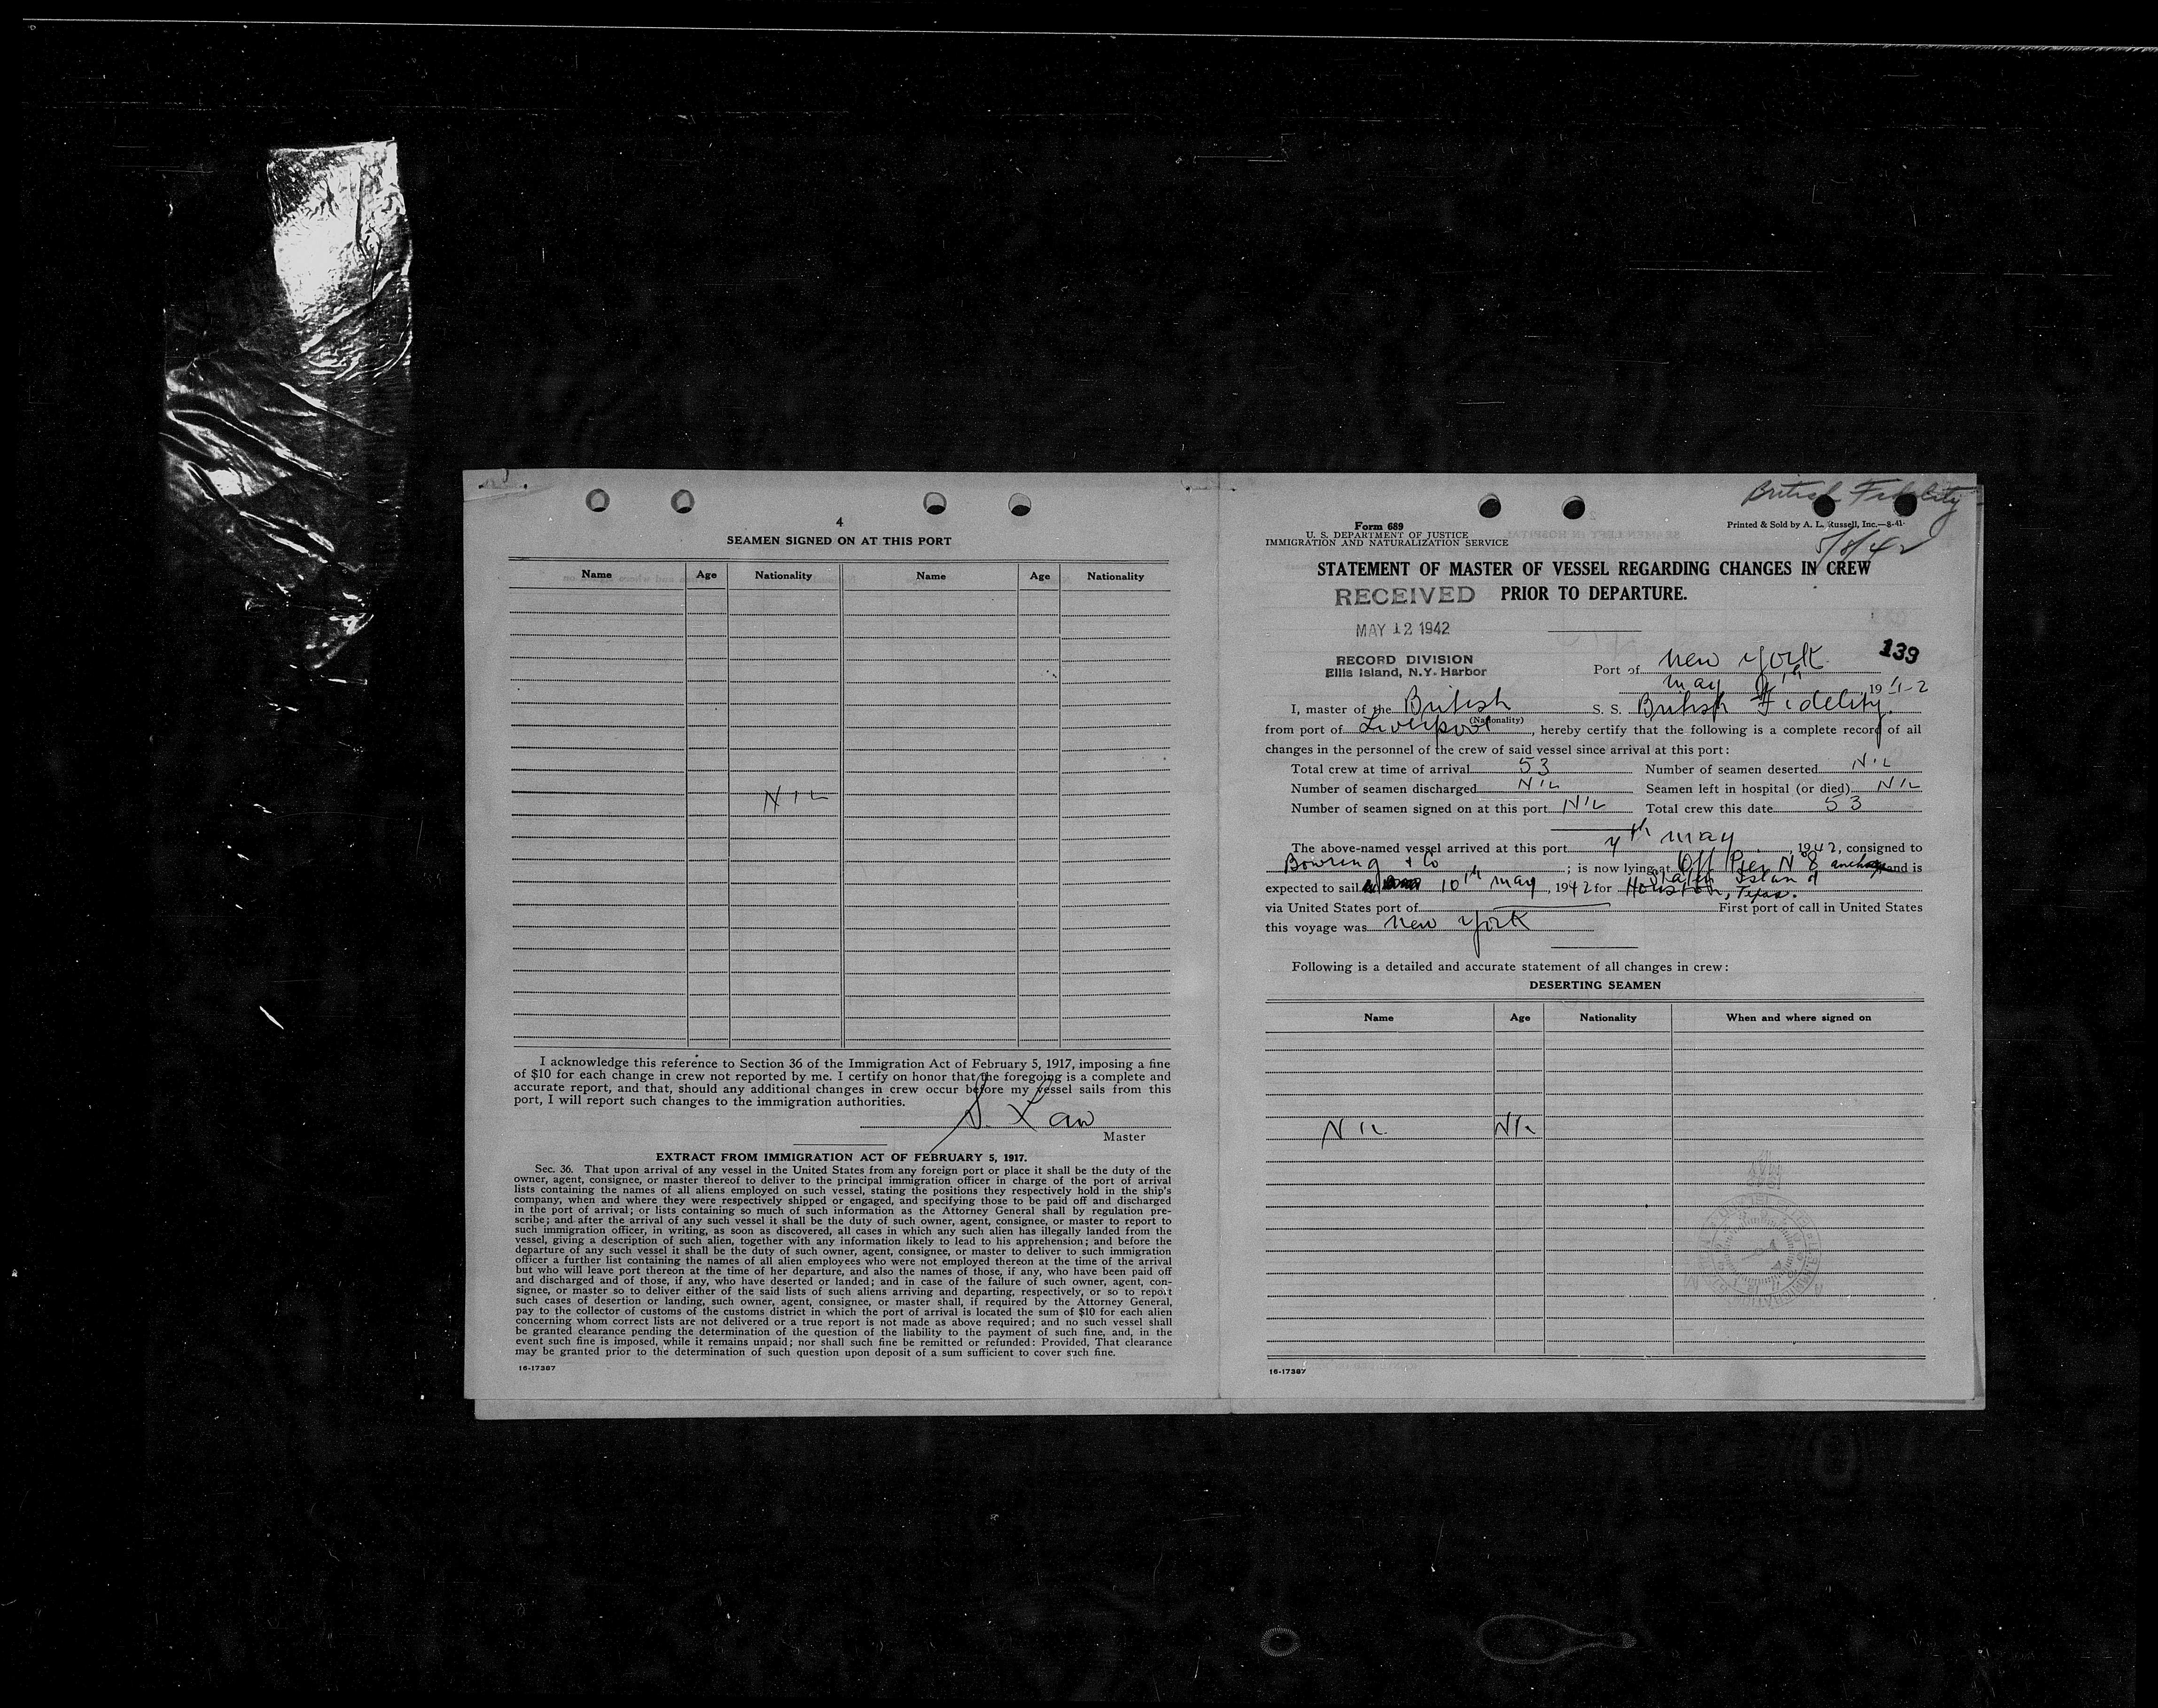 4
SEAMEN SIGNED ON AT THIS PORT
Name Age Nationality Name Age Nationality
NIL
I acknowledge this reference to Section 36 of the Immigration Act of February 5, 1917, imposing a fine
of $10 for each change in crew not reported by me. I certify on honor that the foregoing is a complete and
accurate report, and that, should any additional changes in crew occur before my vessel sails from this
port, I will report such changes to the immigration authorities.
S. Law
Master
EXTRACT FROM IMMIGRATION ACT OF FEBRUARY 5, 1917.
Sec. 36. That upon arrival of any vessel in the United States from any foreign port or place it shall be the duty of the
owner, agent, consignee, or master thereof to deliver to the principal immigration officer in charge of the port of arrival
lists containing the names of all aliens employed on such vessel, stating the positions they respectively hold in the ship's
company, when and where they were respectively shipped or engaged, and specifying those to be paid off and discharged
in the port of arrival; or lists containing so much of such information as the Attorney General shall by regulation pre-
scribe; and after the arrival of any such vessel it shall be the duty of such owner, agent, consignee, or master to report to
such immigration officer, in writing, as soon as discovered, all cases in which any such alien has illegally landed from the
vessel, giving a description of such alien, together with any information likely to lead to his apprehension; and before the
departure of any such vessel it shall be the duty of such owner, agent, consignee, or master to deliver to such immigration
officer a further list containing the names of all alien employees who were not employed thereon at the time of the arrival
but who will leave port thereon at the time of her departure, and also the names of those, if any, who have been paid off
and discharged and of those, if any, who have deserted or landed; and in case of the failure of such owner, agent, con-
signee, or master so to deliver either of the said lists of such aliens arriving and departing, respectively, or so to report
such cases of desertion or landing, such owner, agent, consignee, or master shall, if required by the Attorney General,
pay to the collector of customs of the customs district in which the port of arrival is located the sum of $10 for each alien
concerning whom correct lists are not delivered or a true report is not made as above required; and no such vessel shall
be granted clearance pending the determination of the question of the liability to the payment of such fine, and, in the
event such fine is imposed, while it remains unpaid; nor shall such fine be remitted or refunded: Provided, That clearance
may be granted prior to the determination of such question upon deposit of a sum sufficient to cover such fine.
16-17387
British Fidelity
Form 689
Printed & Sold by A. L. Russell, Inc.—8-41
U. S. DEPARTMENT OF JUSTICE
IMMIGRATION AND NATURALIZATION SERVICE
5/8/42
STATEMENT OF MASTER OF VESSEL REGARDING CHANGES IN CREW
RECEIVED PRIOR TO DEPARTURE.
MAY 12 1942
139
RECORD DIVISION
Ellis Island, N.Y. Harbor
Port of New York
May 8th, 1942
I, master of the British S. S. British Fidelity.
(Nationality)
from port of Liverpool, hereby certify that the following is a complete record of all
changes in the personnel of the crew of said vessel since arrival at this port:
Total crew at time of arrival 53 Number of seamen deserted NIL
Number of seamen discharged NIL Seamen left in hospital (or died) NIL
Number of seamen signed on at this port NIL Total crew this date 53
The above-named vessel arrived at this port 7th May, 1942, consigned to
Bowring & Co; is now lying at Off Pier No 8 and is
Staten Island
expected to sail 10th May, 1942 for Houston, Texas.
via United States port of First port of call in United States
this voyage was New York
Following is a detailed and accurate statement of all changes in crew:
DESERTING SEAMEN
Name Age Nationality When and where signed on
NIL NIL
16-17387